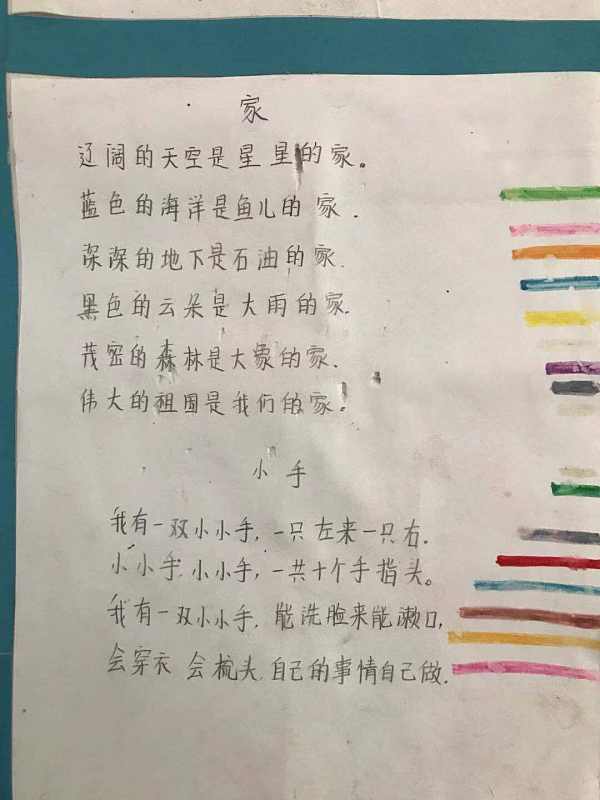 家
辽阔的天空是星星的家。
蓝色的海洋是鱼儿的家.
深深的地下是石油的家.
黑色的云朵是大雨的家.
茂密的森林是大象的家.
伟大的祖国是我们的家。
小手
我有一双小小手,一只左来一只右.
小小手.小小手,一共十个手指头。
我有一双小小手.能洗脸来能漱口,
会穿衣 会梳头.自己的事情自己做.